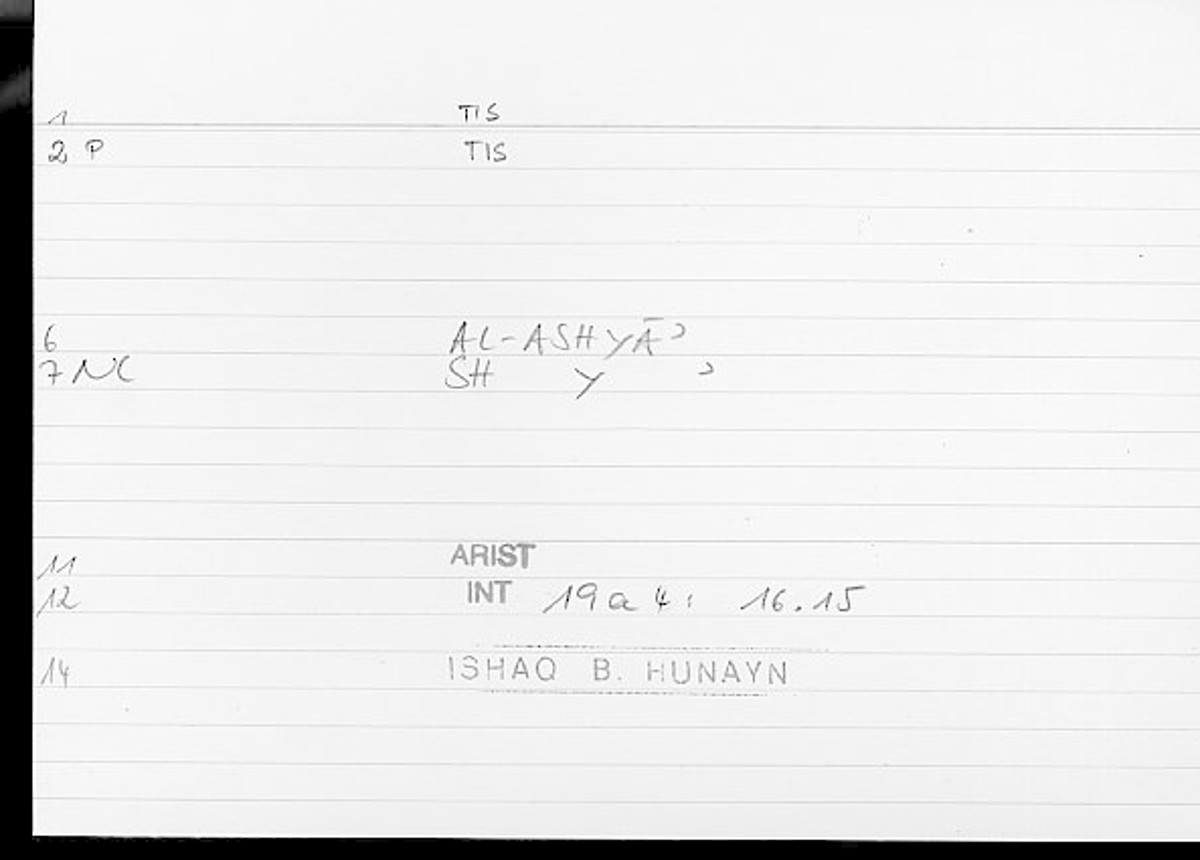 1 TIS
2 P TIS
6 AL-ASHYĀʾ
7 NC SH Y ʾ
11 ARIST
12 INT 19a4: 16.15
14 ISHAQ B. HUNAYN